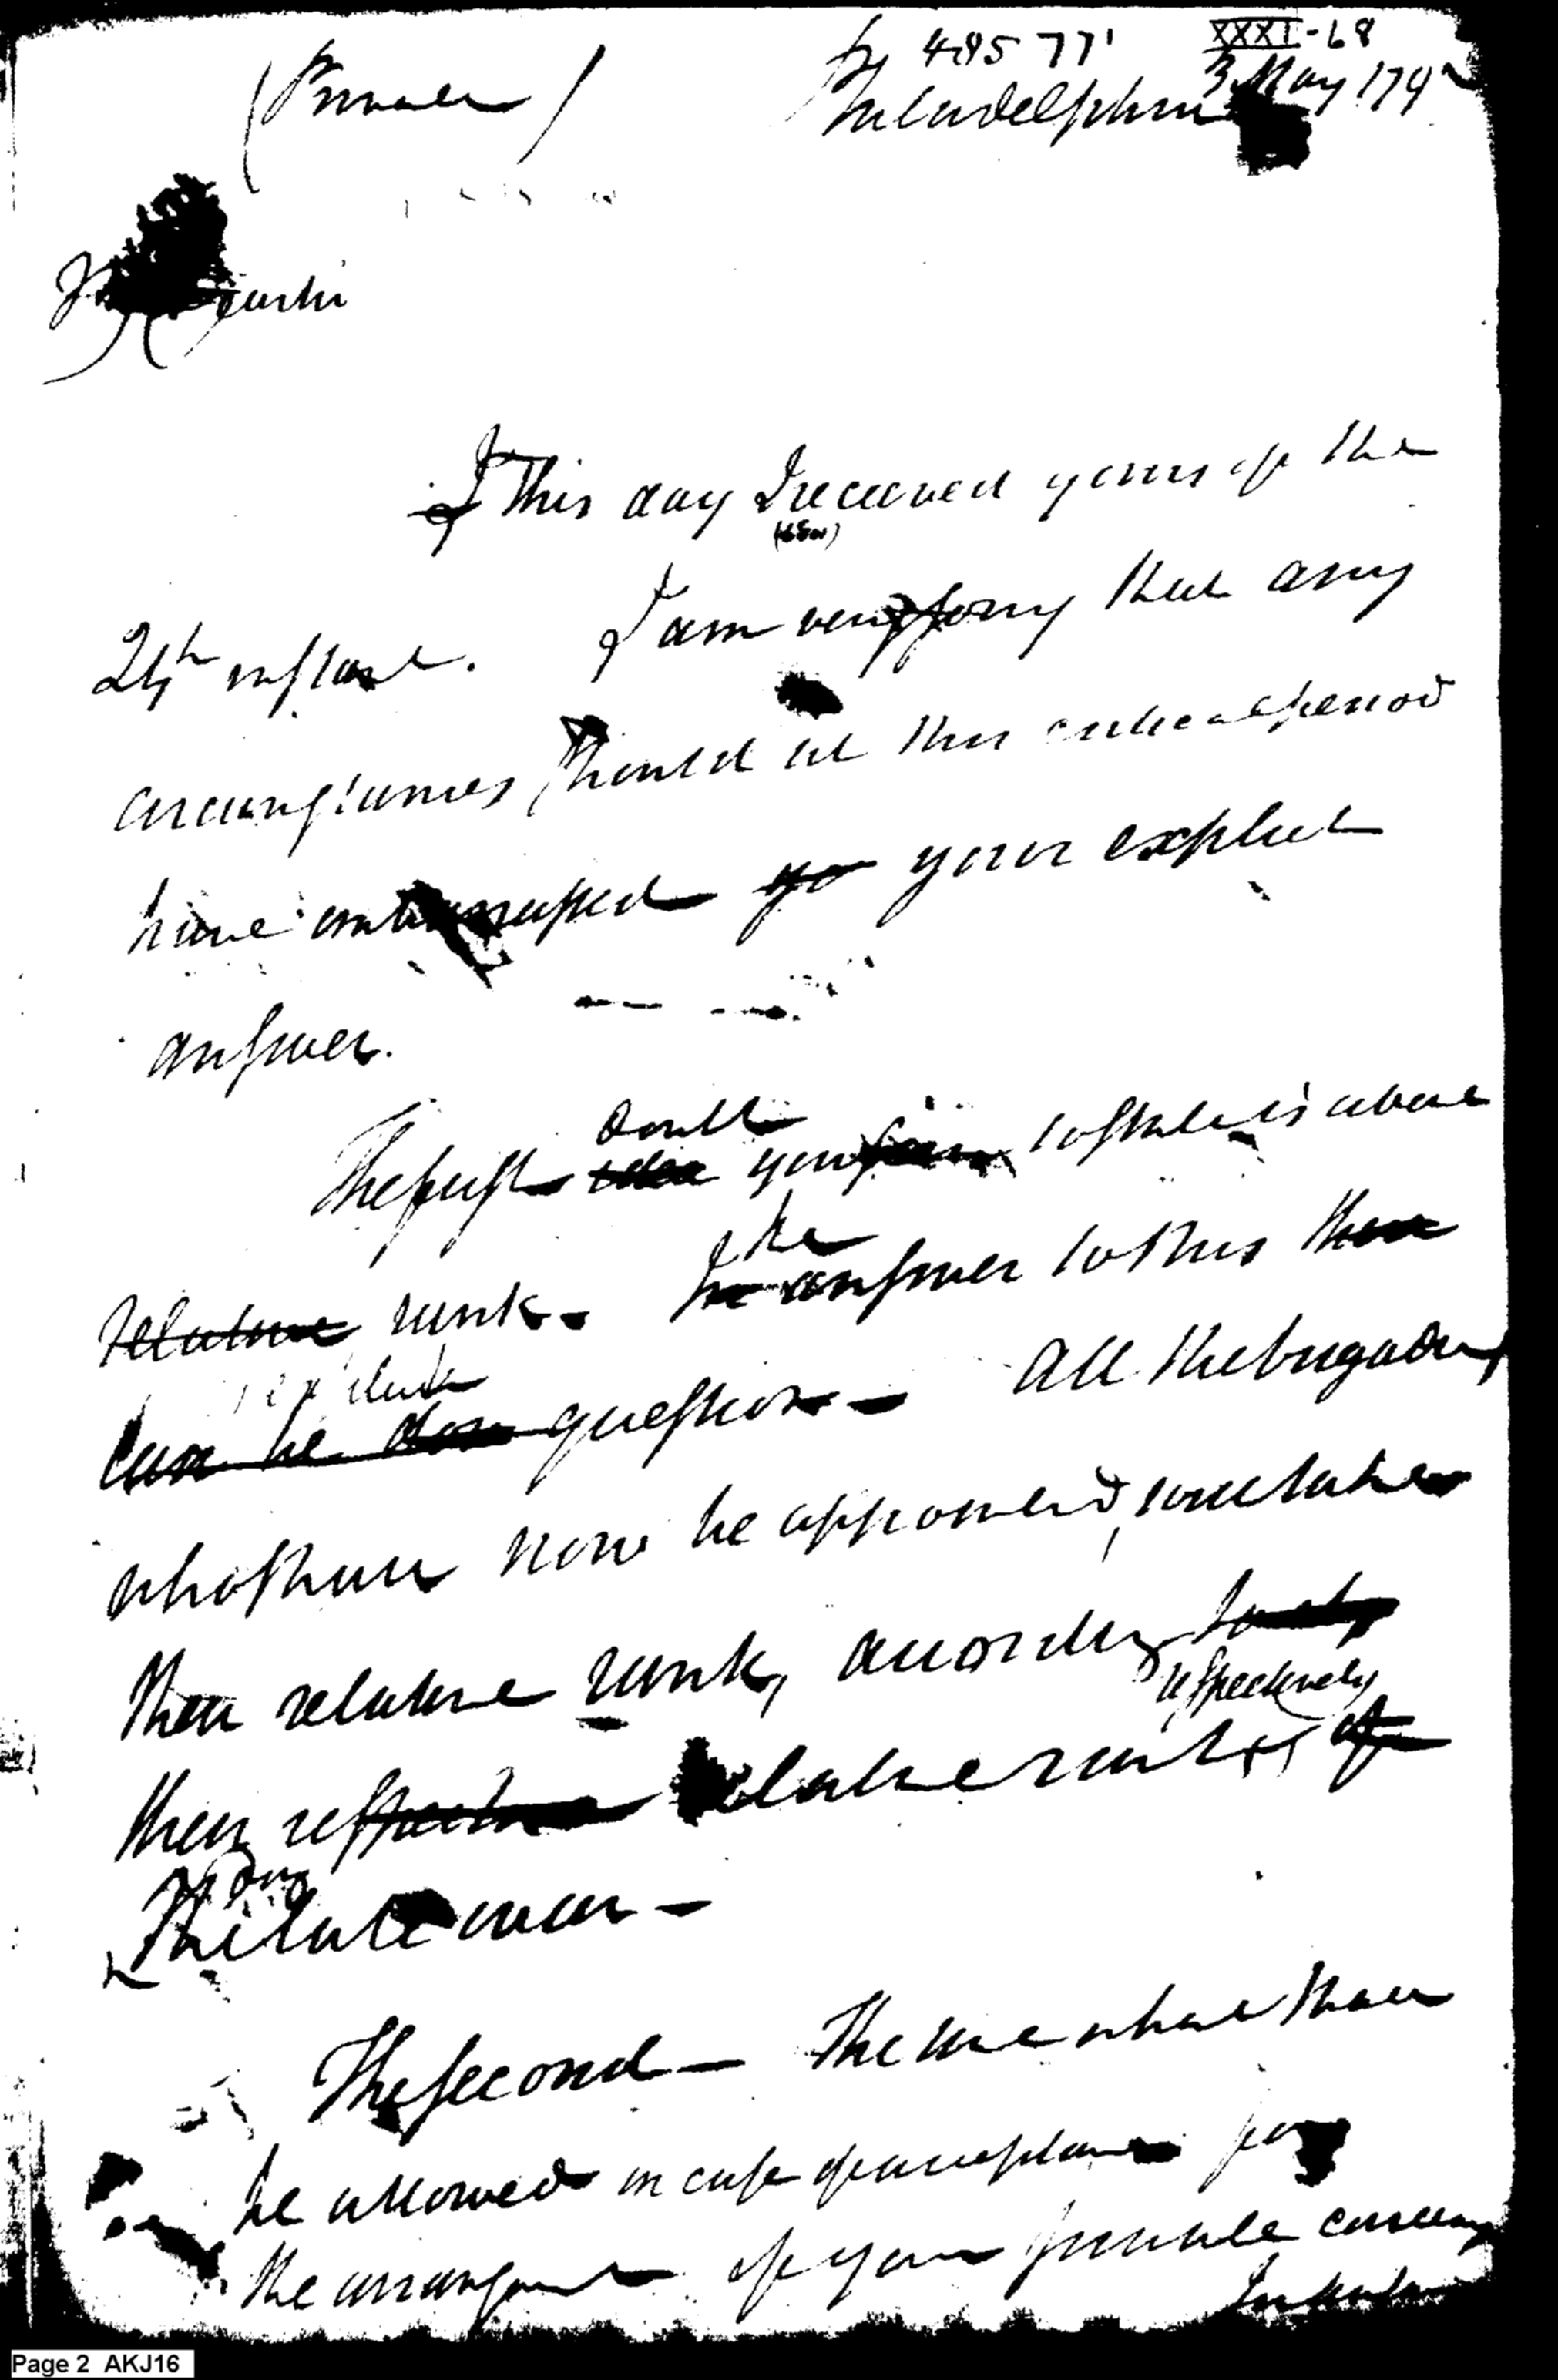 (Private)
485 77
XXXI-68
Philadelphia 3 May 179
I This day I received yours of the
24th instant. I am very sorry that any
circumstances should at this critical period
have embarrassed yo your explicit
answer.
doubt
The first you to state is about
the
relative rank. answer to this
question - All the brigadiers
who shall now be appointed, will take
their relative rank, according to
respectively
their respective relative ranks of
the late war -
The second - The time what shall
be allowed in case of acceptance for
the arrangement of your private concerns
Page 2 AKJ16